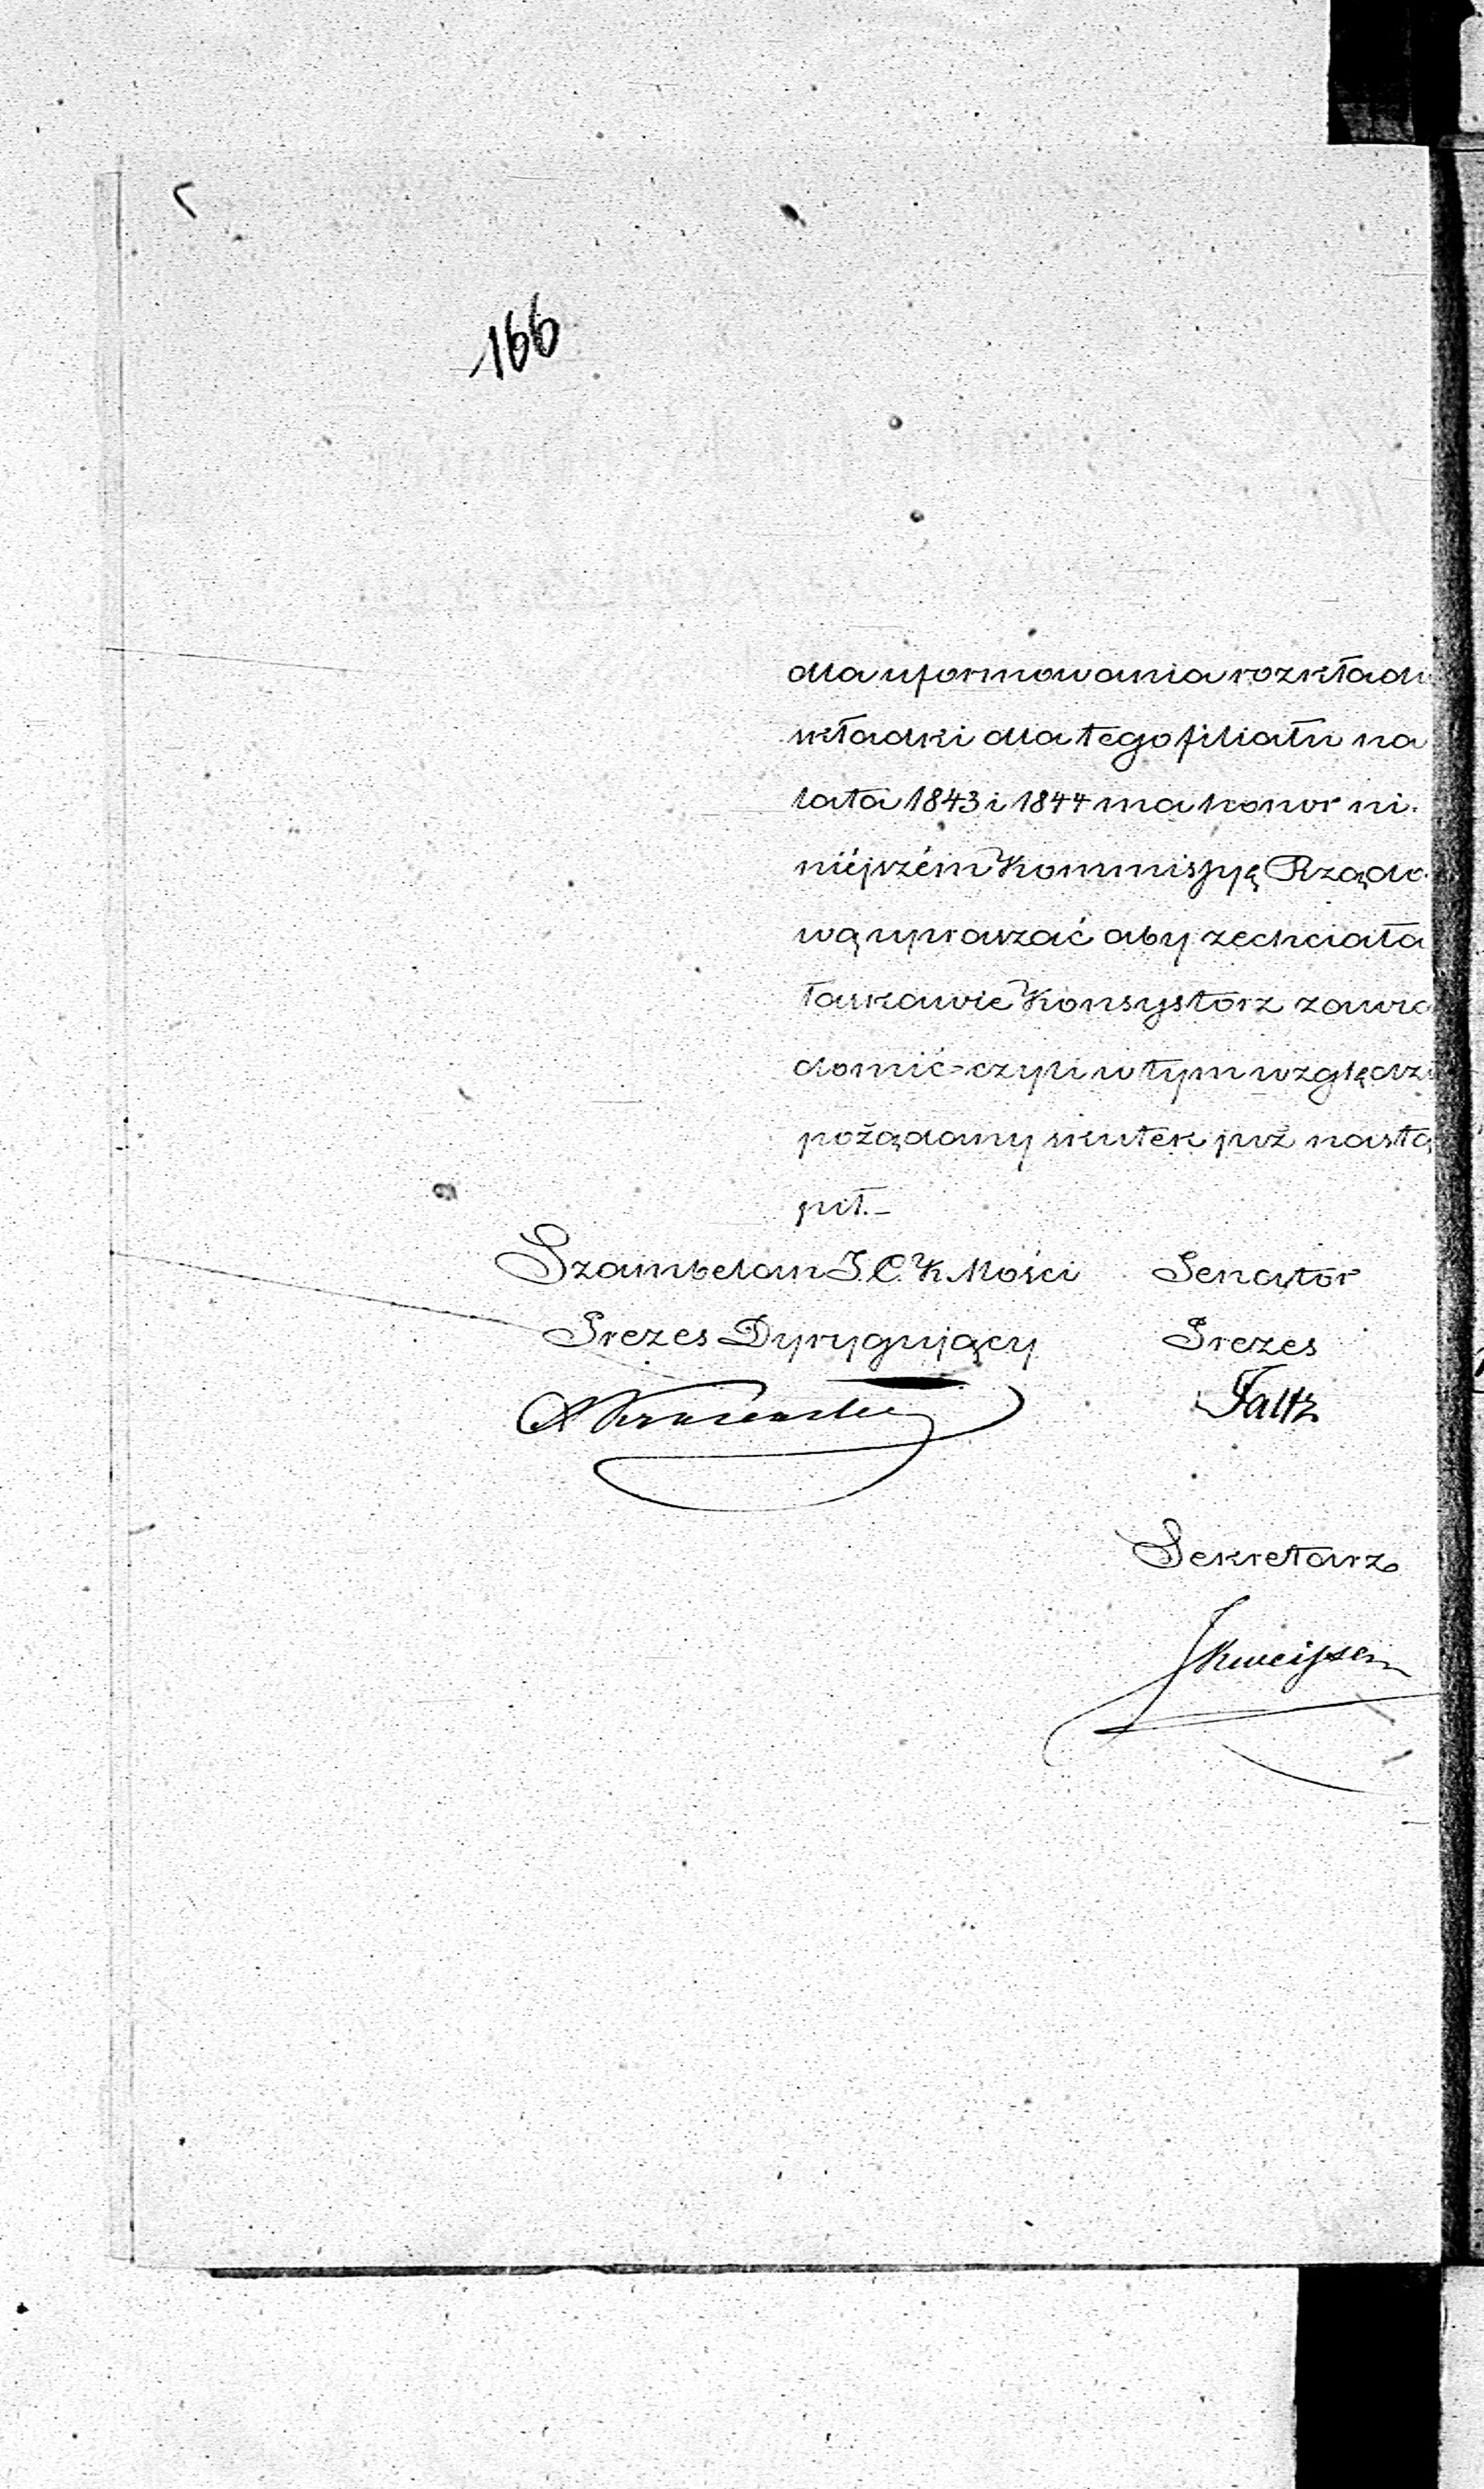 166
dla uformowania rozkładu
składki dla tego filiału na
lata 1843 i 1844 ma honor ni-
niéjszém Kommissyą Rządo-
wą upraszać aby zechciała
łaskawie Konsystorz zawia
domić czyli w tym względzi
pożądany skutek już nastą
pił.—
Szambelan J. C. K. Mości Senator
Prezes Dyrygujący Prezes
Faltz
Sekretarz